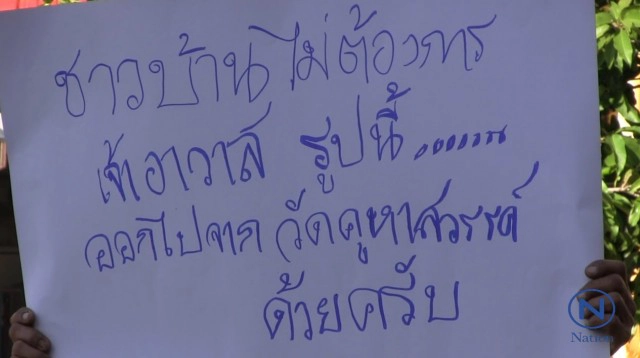 ชาวบ้านไม่ต้องการ
เจ้าอาวาส รูปนี้.......
ออกไปจาก วัดคูหาสวรรค์
ด้วยครับ
N
Nation